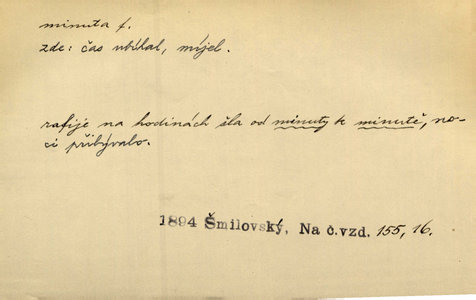 minuta f.
zde: čas ubíhal, míjel.
rafije na hodinách šla od minuty k minutě, no-
ci přibývalo.
1894 Šmilovský, Na č.vzd. 155, 16.